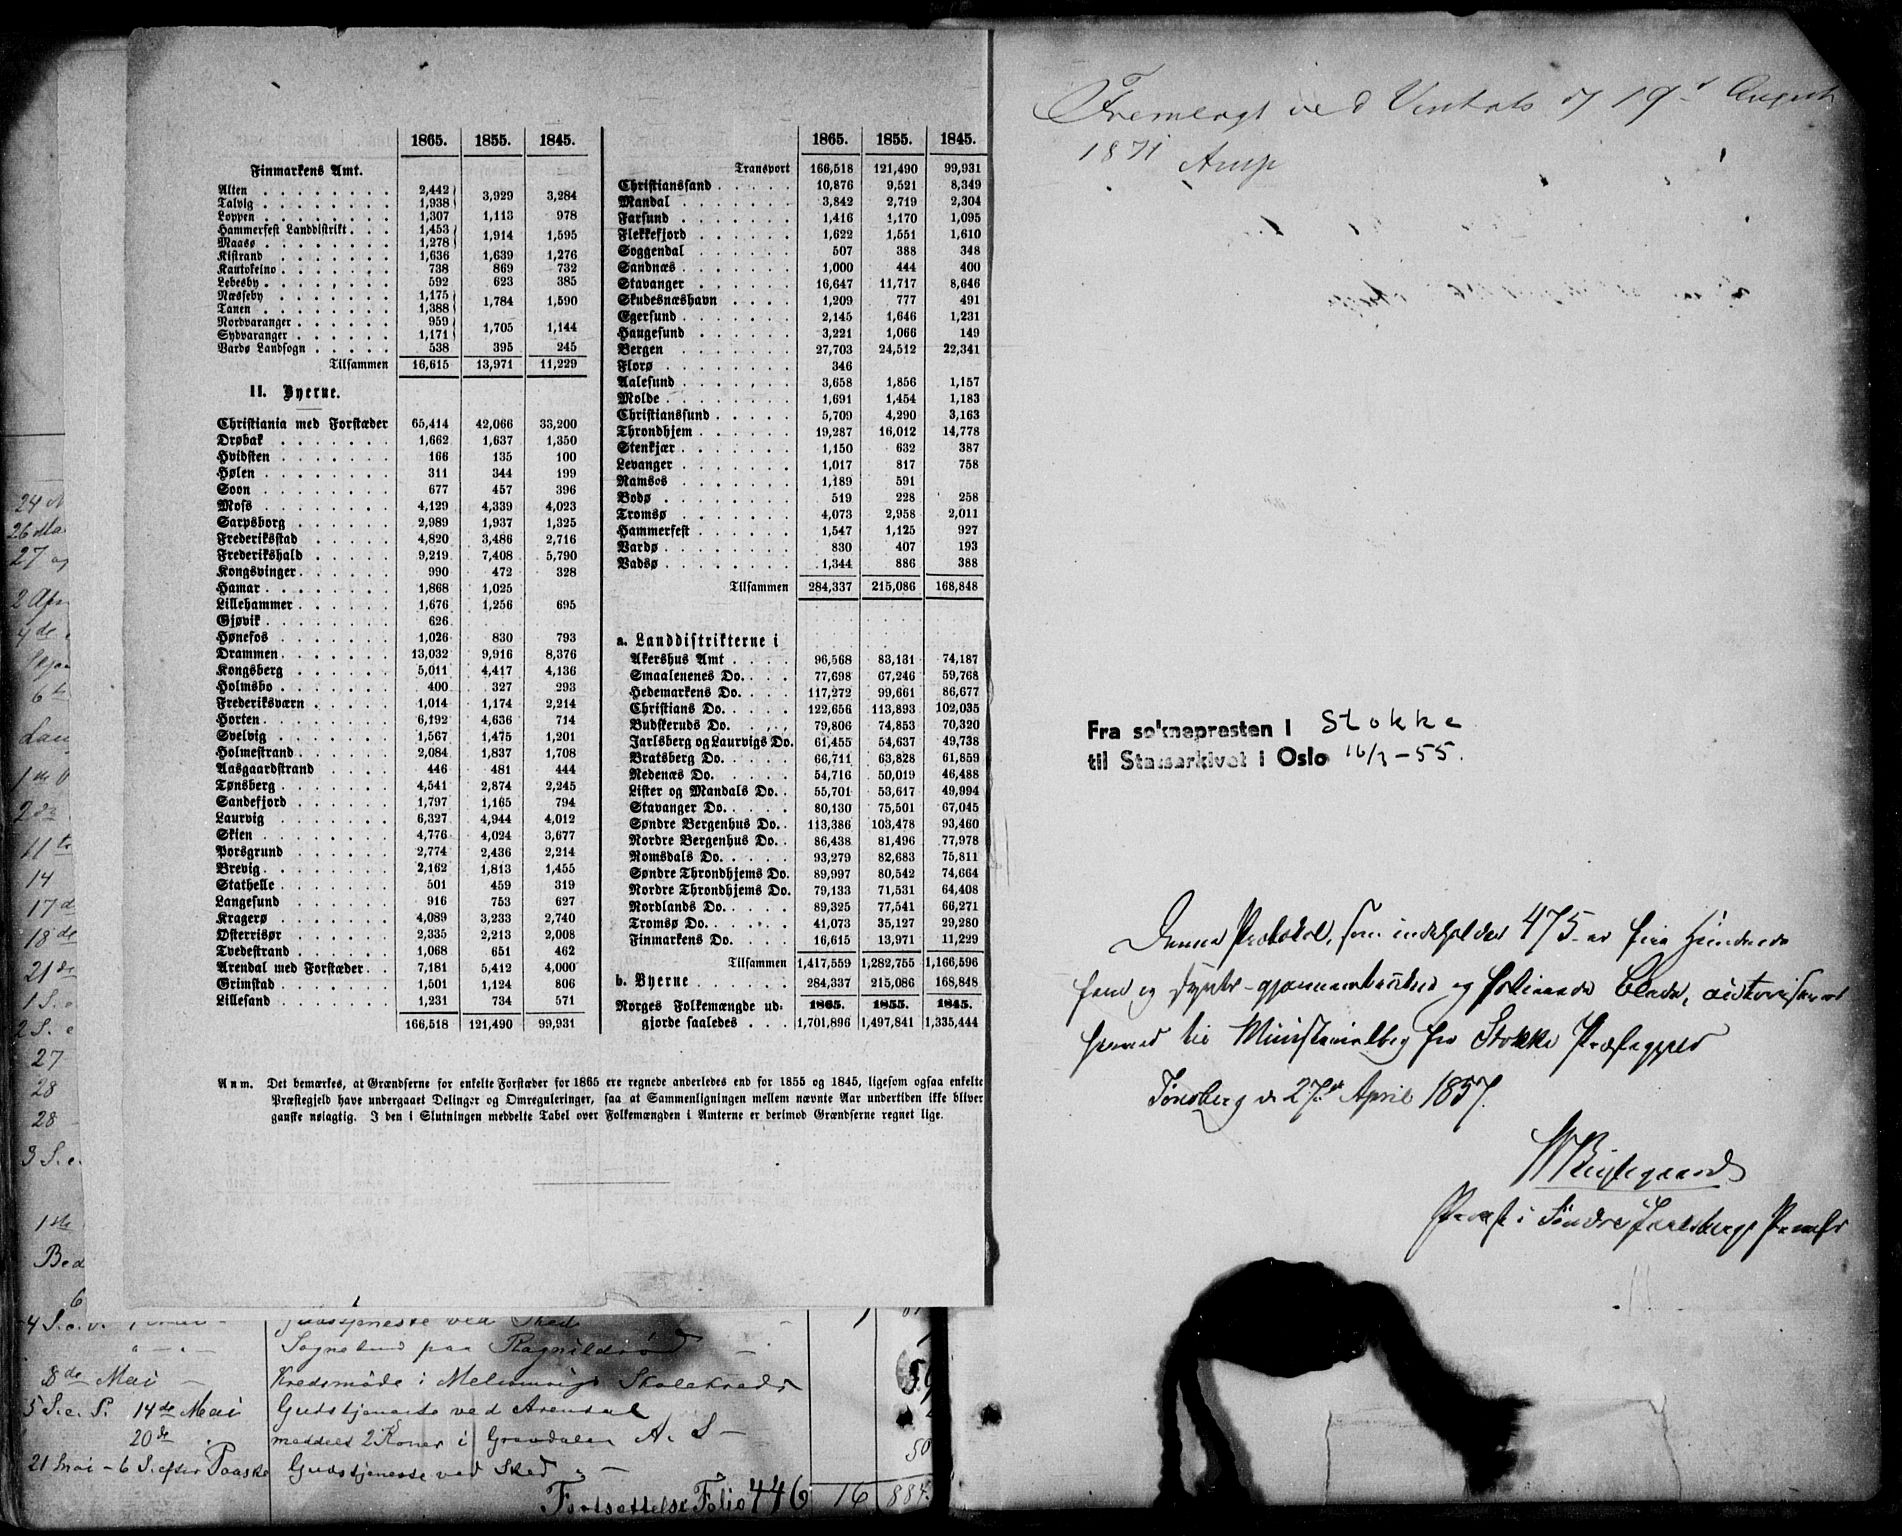 1865. 1855. 1845.
Finmarkens Amt.
Alten 2,442
Talvig 1,938 3,929 3,284
Loppen 1,307 1,113 978
Hammerfest Landdistrikt 1,453
Maasø 1,278 1,914 1,595
Kistrand 1,636 1,639 1,276
Kautokeino 738 869 732
Lebesby 592 623 385
Næsseby 1,175
Tanen 1,388 1,784 1,590
Nordvaranger 959
Sydvaranger 1,171 1,705 1,144
Vardø Landsogn 538 395 245
Tilsammen 16,615 13,971 11,229
II. Byerne.
Christiania med Forstæder 65,414 42,066 33,200
Drøbak 1,662 1,637 1,350
Hvidsten 166 135 100
Hølen 311 344 199
Soon 677 457 396
Moss 4,129 4,339 4,023
Sarpsborg 2,989 1,937 1,325
Frederiksstad 4,820 3,486 2,716
Frederikshald 9,219 7,408 5,790
Kongsvinger 990 472 328
Hamar 1,868 1,025
Lillehammer 1,676 1,256 695
Gjøvik 626
Hønefos 1,026 830 793
Drammen 13,032 9,916 8,376
Kongsberg 5,011 4,417 4,136
Holmsbo 400 327 293
Frederiksværn 1,014 1,174 2,214
Horten 6,192 4,636 714
Svelvig 1,567 1,475 1,201
Holmestrand 2,084 1,837 1,708
Aasgaardstrand 446 481 444
Tønsberg 4,541 2,874 2,245
Sandefjord 1,797 1,165 794
Laurvig 6,327 4,944 4,012
Skien 4,776 4,024 3,677
Porsgrund 2,774 2,436 2,214
Brevig 2,162 1,813 1,455
Stathelle 501 459 319
Langesund 916 753 627
Kragerø 4,089 3,233 2,740
Østerrisør 2,335 2,213 2,008
Tvedestrand 1,068 651 462
Arendal med Forstæder 7,181 5,412 4,000
Grimstad 1,501 1,124 806
Lillesand 1,231 734 571
166,518 121,490 99,931
1865. 1855. 1845.
Transport 166,518 121,490 99,931
Christianssand 10,876 9,521 8,349
Mandal 3,842 2,719 2,304
Farsund 1,416 1,170 1,095
Flekkefjord 1,622 1,551 1,610
Soggendal 507 388 348
Sandnæs 1,000 444 400
Stavanger 16,647 11,717 8,646
Skudesnæshavn 1,209 777 491
Egersund 2,145 1,646 1,231
Haugesund 3,221 1,066 149
Bergen 27,703 24,512 22,341
Florø 346
Aalesund 3,658 1,856 1,157
Molde 1,691 1,454 1,183
Christianssund 5,709 4,290 3,163
Throndhjem 19,287 16,012 14,778
Stenkjær 1,150 632 387
Levanger 1,017 817 758
Namsos 1,189 591
Bodø 519 228 258
Tromsø 4,073 2,958 2,011
Hammerfest 1,547 1,125 927
Vardø 830 407 193
Vadsø 1,344 886 388
Tilsammen 284,337 215,086 168,848
a. Landdistrikterne i
Akershus Amt 96,568 83,131 74,187
Smaalenenes Do. 77,698 67,246 59,768
Hedemarkens Do. 117,272 99,661 86,677
Christians Do. 122,656 113,893 102,035
Budskeruds Do. 79,806 74,853 70,320
Jarlsberg og Laurvigs Do. 61,455 54,637 49,738
Bratsberg Do. 66,711 63,828 61,859
Nedenæs Do. 54,716 50,019 46,488
Lister og Mandals Do. 55,701 53,617 49,994
Stavanger Do. 80,130 75,501 67,045
Søndre Bergenhus Do. 113,386 103,478 93,460
Nordre Bergenhus Do. 86,438 81,496 77,978
Romsdals Do. 93,279 82,683 75,811
Søndre Throndhjems Do. 89,997 80,542 74,664
Nordre Throndhjems Do. 79,133 71,531 64,408
Nordlands Do. 89,325 77,541 66,271
Tromsø Do. 41,073 35,127 29,280
Finmarkens Do. 16,615 13,971 11,229
Tilsammen 1,417,559 1,282,755 1,166,596
b. Byerne 284,337 215,086 168,848
Norges Folkemængde ud- 1865. 1855. 1845.
gjorde saaledes 1,701,896 1,497,841 1,335,444
Anm. Det bemærkes, at Grændserne for enkelte Forstæder for 1865 ere regnede anderledes end for 1855 og 1845, ligesom ogsaa enkelte
Præstegjeld have undergaaet Delinger og Omreguleringer, saa at Sammenligningen mellem nævnte Aar undertiden ikke bliver
ganske nøiagtig. I den i Slutningen meddelte Tabel over Folkemængden i Amterne er derimod Grændserne regnet lige.
24
26 Ma
27
2 Apr
4 de
6 t
Lan
2 de
11 te
14
17 d
18 de
21 de
1 S.
2 S. e
27
28
28
3 S. e.
1 ste
Bed
6
4 S. e. Gudstjeneste ved Sked
Sognebud paa Ragnildrød
8de Mai Kredsmøde i Melsomvigs Skolekreds
5 S. e. P. 14de Mai Gudstjeneste ved Arendal
20de meddelt 2 Koner i Gravdalen A. S
21 Mai - 6 S. efter Paaske Gudstjeneste ved Sked
Fortsættelse Folio 446 16 884
Fremlagt ved Visitats d 19d August
1871 Arup
Fra soknepresten i Stokke
til Statsarkivet i Oslo 16/3-55.
Denne Protokol, som indeholder 475 er fire Hundrede
fem og Sytti gjennemtrukne og folierede Blade, autoriseres
herved til Ministerialbog for Stokke Præstegjeld
Tønsberg d 27de April 1857.
Provst i Søndre Jarlsbergs Provsti